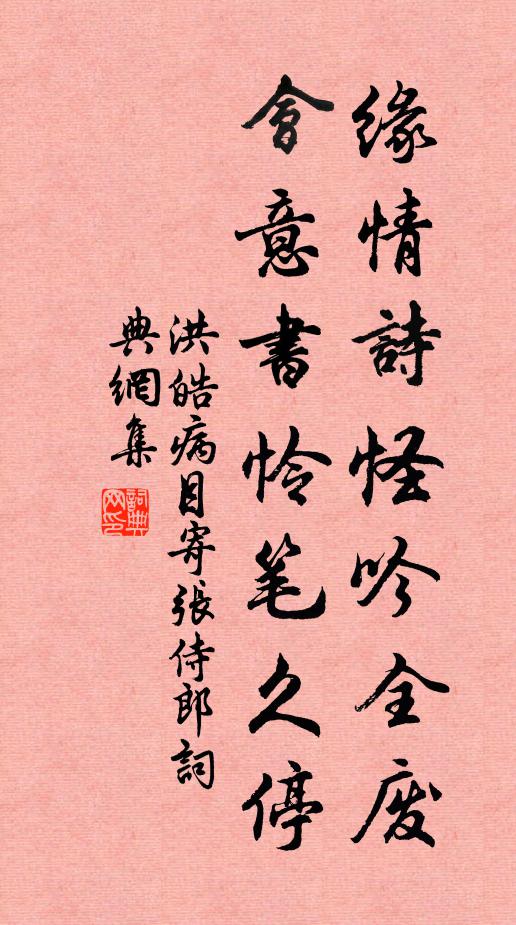 緣情詩怪吟全废
會意書怜笔久停
洪皓病目寄張侍郎詞
典網集
詞典网印